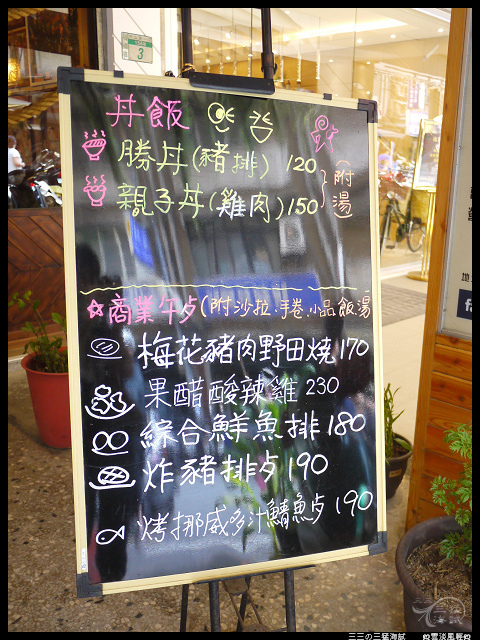 3
丼飯
勝丼(豬排) 120
親子丼(雞肉) 150
(附湯)
商業午歺(附沙拉.手卷.小品.飯.湯
梅花豬肉野田燒170
果醋酸辣雞 230
綜合鮮魚排 180
炸豬排歺190
烤挪威多汁鯖魚歺 190
三三の三猛海賦
雲淡風輕